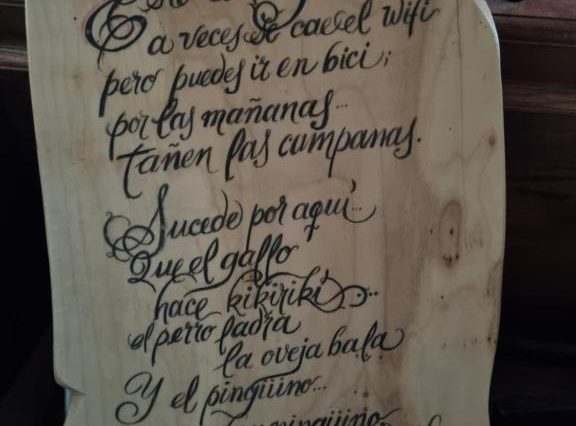 a veces se cae el wifi
pero puedes ir en bici;
por las mañanas...
tañen las campanas.
Sucede por aquí...
Que el gallo
hace kikirikí...
el perro ladra
la oveja bala
Y el pingüino...
pingüino